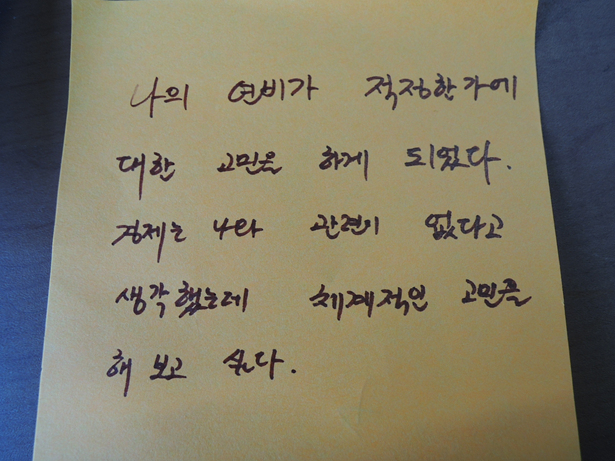 나의 연비가 적정한가에
대한 고민을 하게 되었다.
경제는 나와 관련이 없다고
생각했는데 체계적인 고민을
해 보고 싶다.